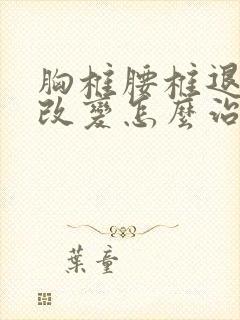 胸椎腰椎退
改變怎麼治
葉童